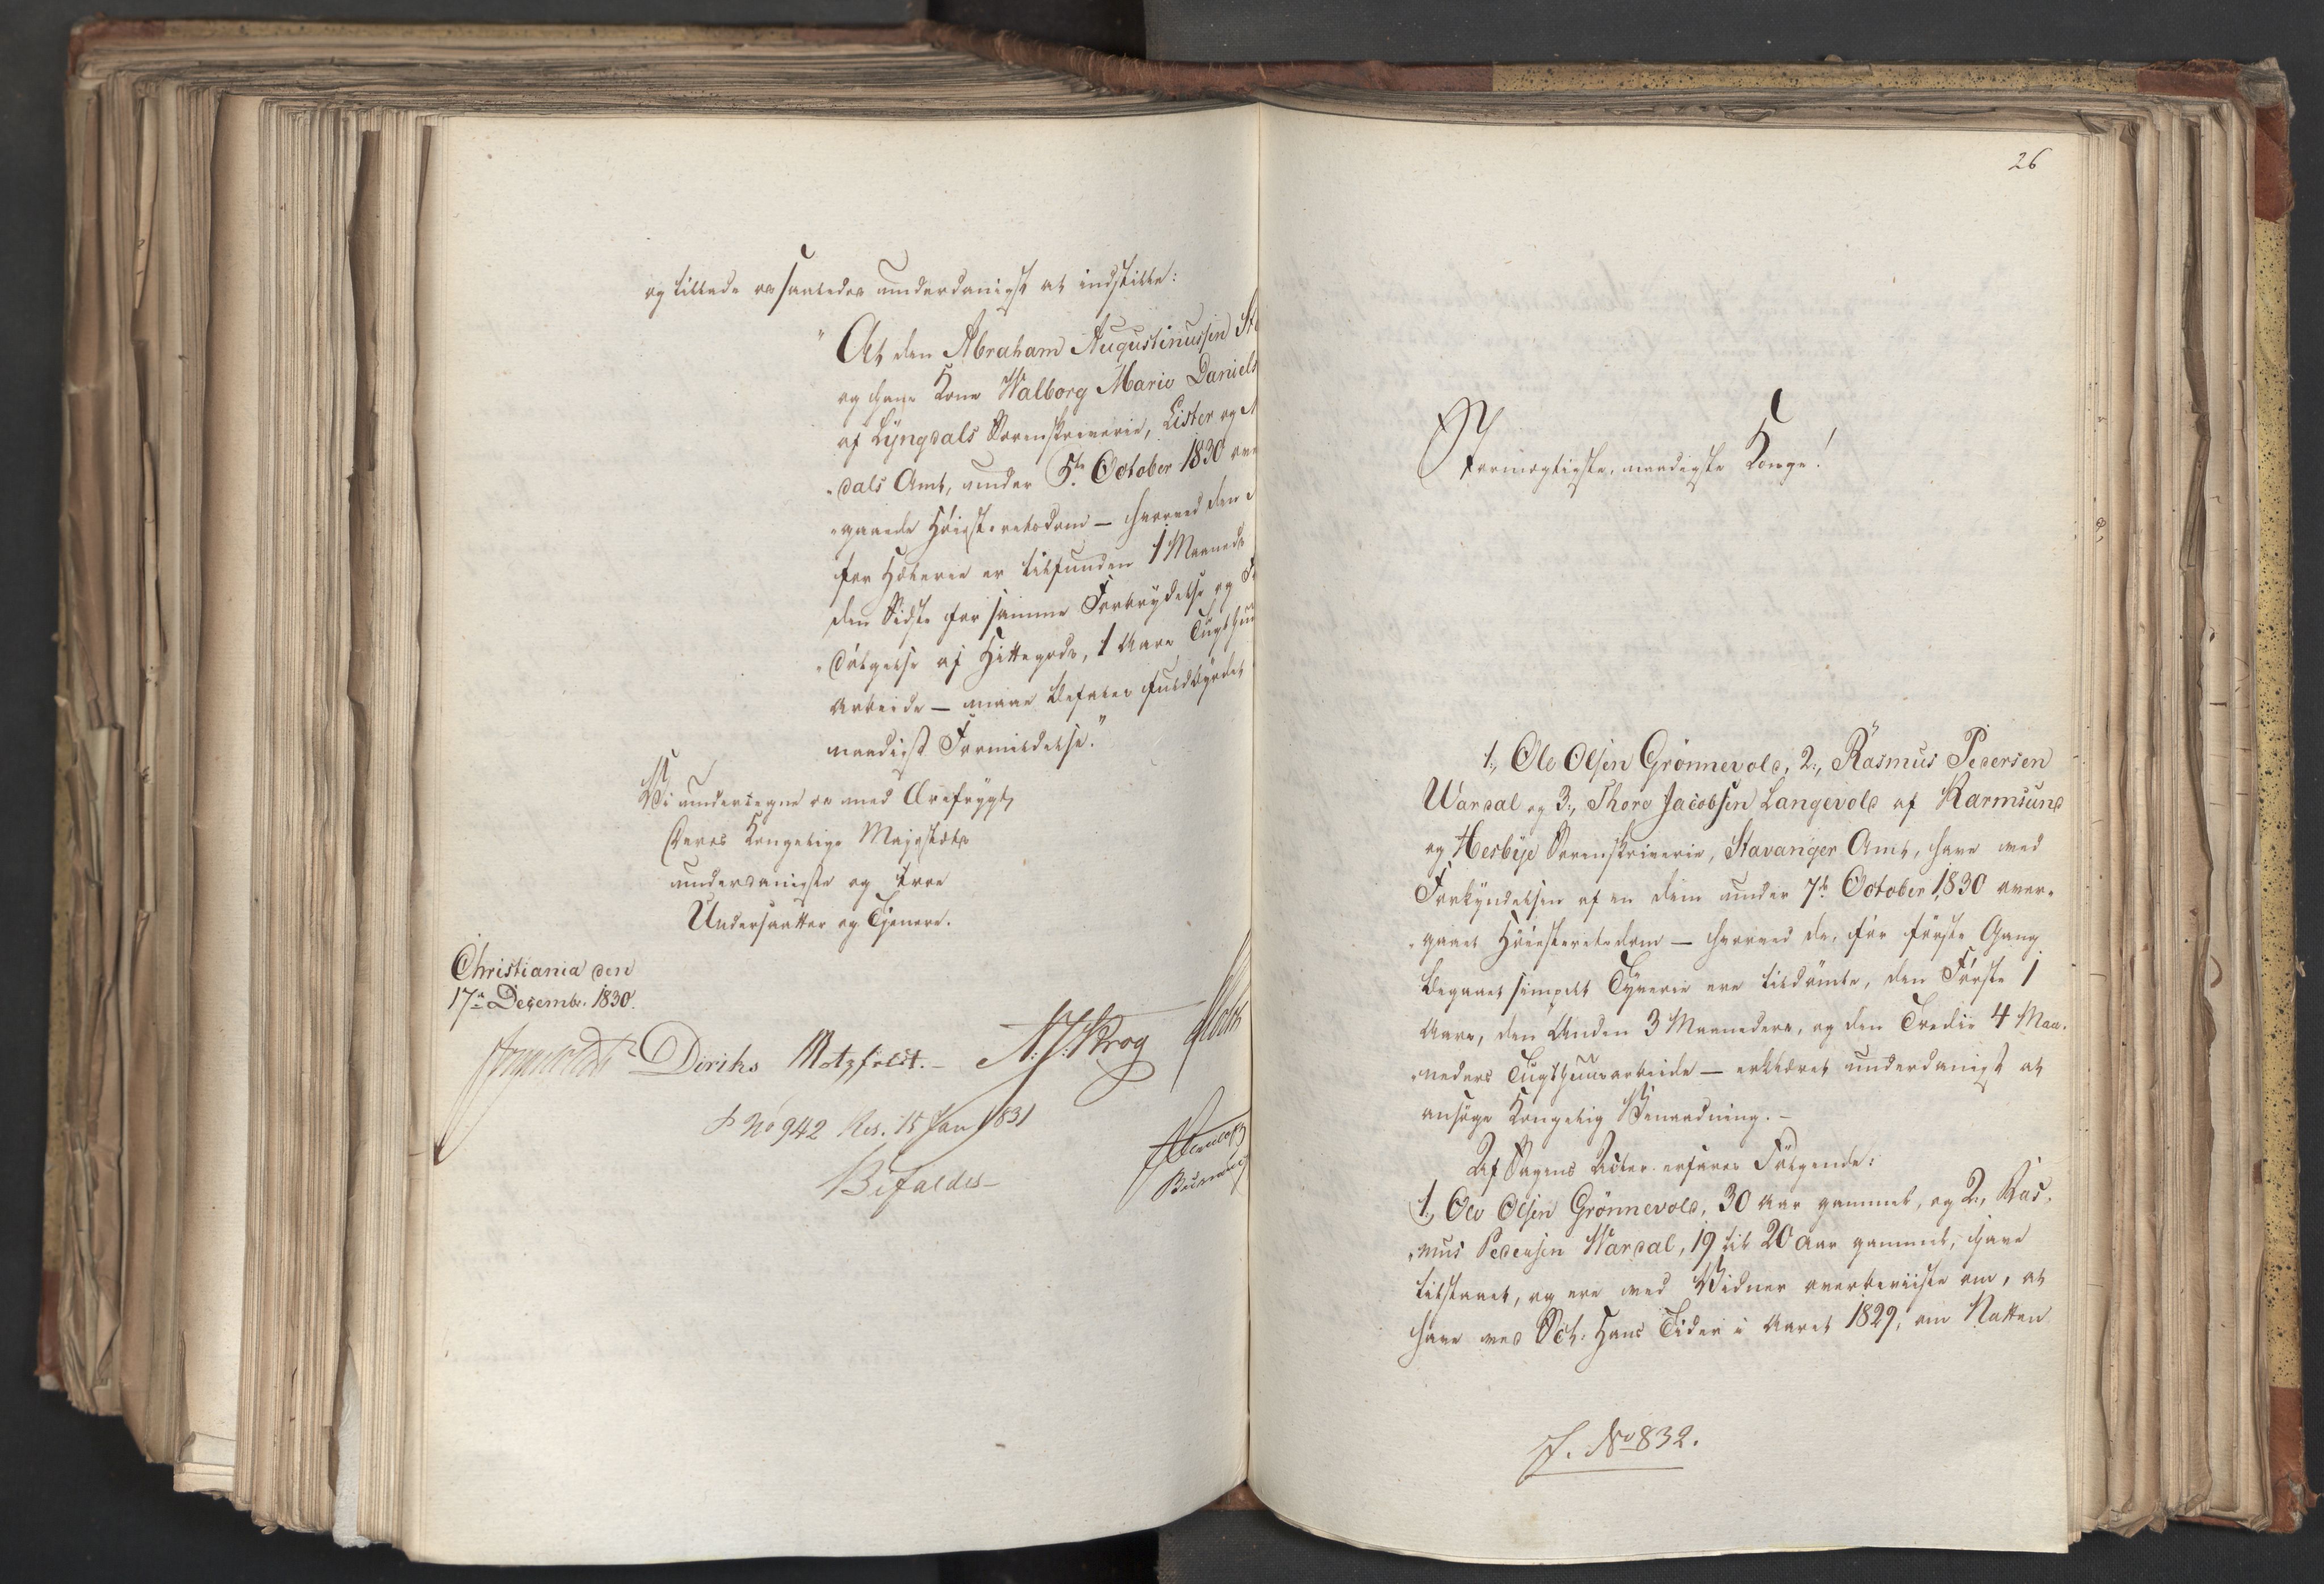 og tillade os saaledes underdanigst at indstille:
"At den Abraham Augustinussen
og hans Kone Walborg Marie Daniels
af Lyngdals Sorenskriverie, Lister og
-dals Amt, under 5te October 1830 over
-gaaede Høiesteretsdom — hvorved den
for Hæleri er tilfunden 1 Maaneds
den Sidste for samme Forbrydelse og
-dølgelse af Hittegods, 1 Aars Tugthuus
Arbeide — maae befales fuldbyrdet
naadigst Formildelse."
Vi undertegne os med Ærefrygt,
Deres Kongelige Majestæts
underdanigste og troe
Undersaatter og Tjenere.
Christiania den
17de Decembr. 1830.
Diriks Motzfeldt. - N: J: Krog
No 942 Res. 15 Jan 1831
Bifaldes -
26
Stormægtigste, naadigste Konge!
1., Ole Olsen Grønnevold, 2., Rasmus Pedersen
Wardal og 3., Thore Jacobsen Langevold af Karmsund
og Hesbye Sorenskriverie, Stavanger Amt, have ved
Forkyndelsen af en dem under 7de October 1830 over-
-gaaet Høiesteretsdom — hvorved de, for første Gang
begaaet simpelt Tyverie ere tildømte, den Første 1
Aars, den Anden 3 Maaneders, og den Tredie 4 Maa-
-neders Tugthuusarbeide — erklæret underdanigst at
ansøge Kongelig Benaadning. -
Af Sagens Acter erfares Følgende:
1., Ole Olsen Grønnevold, 30 Aar gammel, og 2., Ras-
-mus Pedersen Wardal, 19 til 20 Aar gammel, have
tilstaaet, og ere ved Vidner overbeviiste om, at
have ved Sct: Hans Tider i Aaret 1829, om Natten
J. No 832.